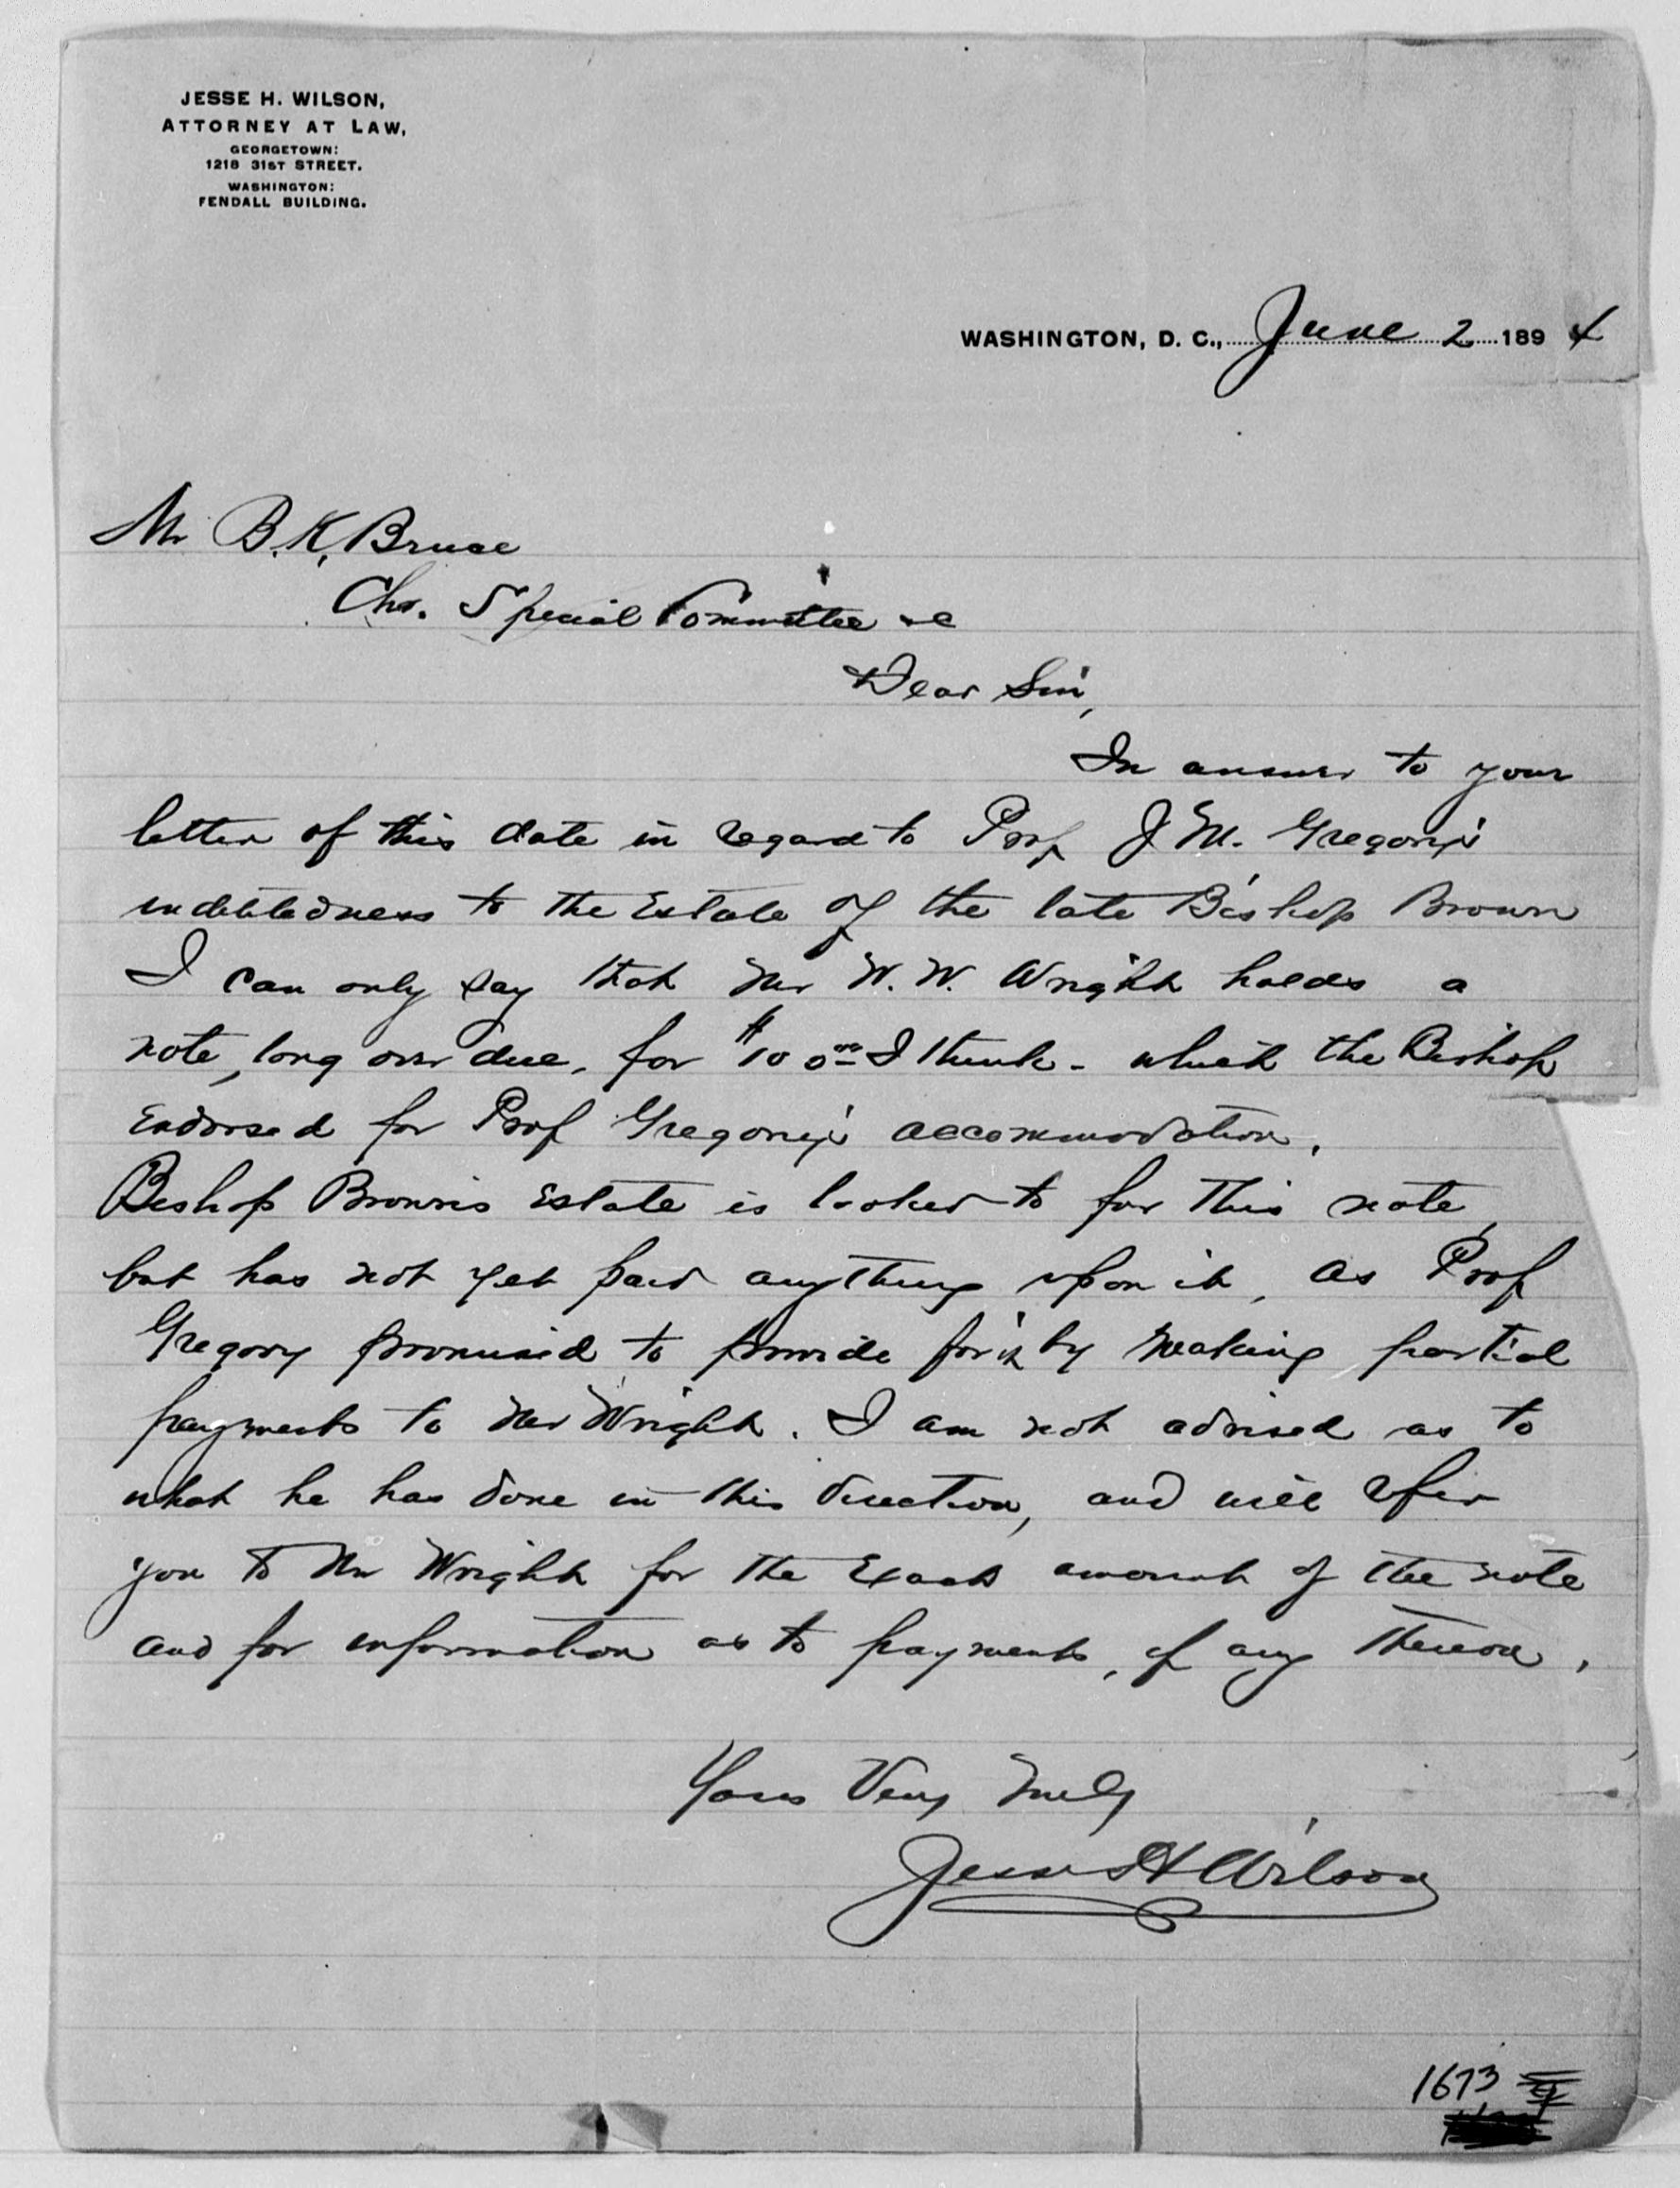 JESSE H. WILSON,
ATTORNEY AT LAW,
GEORGETOWN:
1218 31ST STREET.
WASHINGTON:
FENDALL BUILDING.
WASHINGTON, D. C., June 2 1894
Mr B. K. Bruce
Chr. Special Committee &c
Dear Sir,
In answer to your
letter of this date in regard to Prof J. M. Gregory's
indebtedness to the Estate of the late Bishop Brown
I can only say that Mr W. W. Wright holds a
note, long over due, for $100 00 I think - which the Bishop
Endorsed for Prof Gregory's accommodation.
Bishop Brown's Estate is looked to for this note,
but has not yet paid anything upon it, as Prof
Gregory promised to provide for it by making partial
payments to Mr Wright. I am not advised as to
what he has done in this direction, and will refer
you to Mr Wright for the Exact amount of the note
and for information as to payments, if any thereon.
Yours Very Truly
Jesse H Wilson
1673